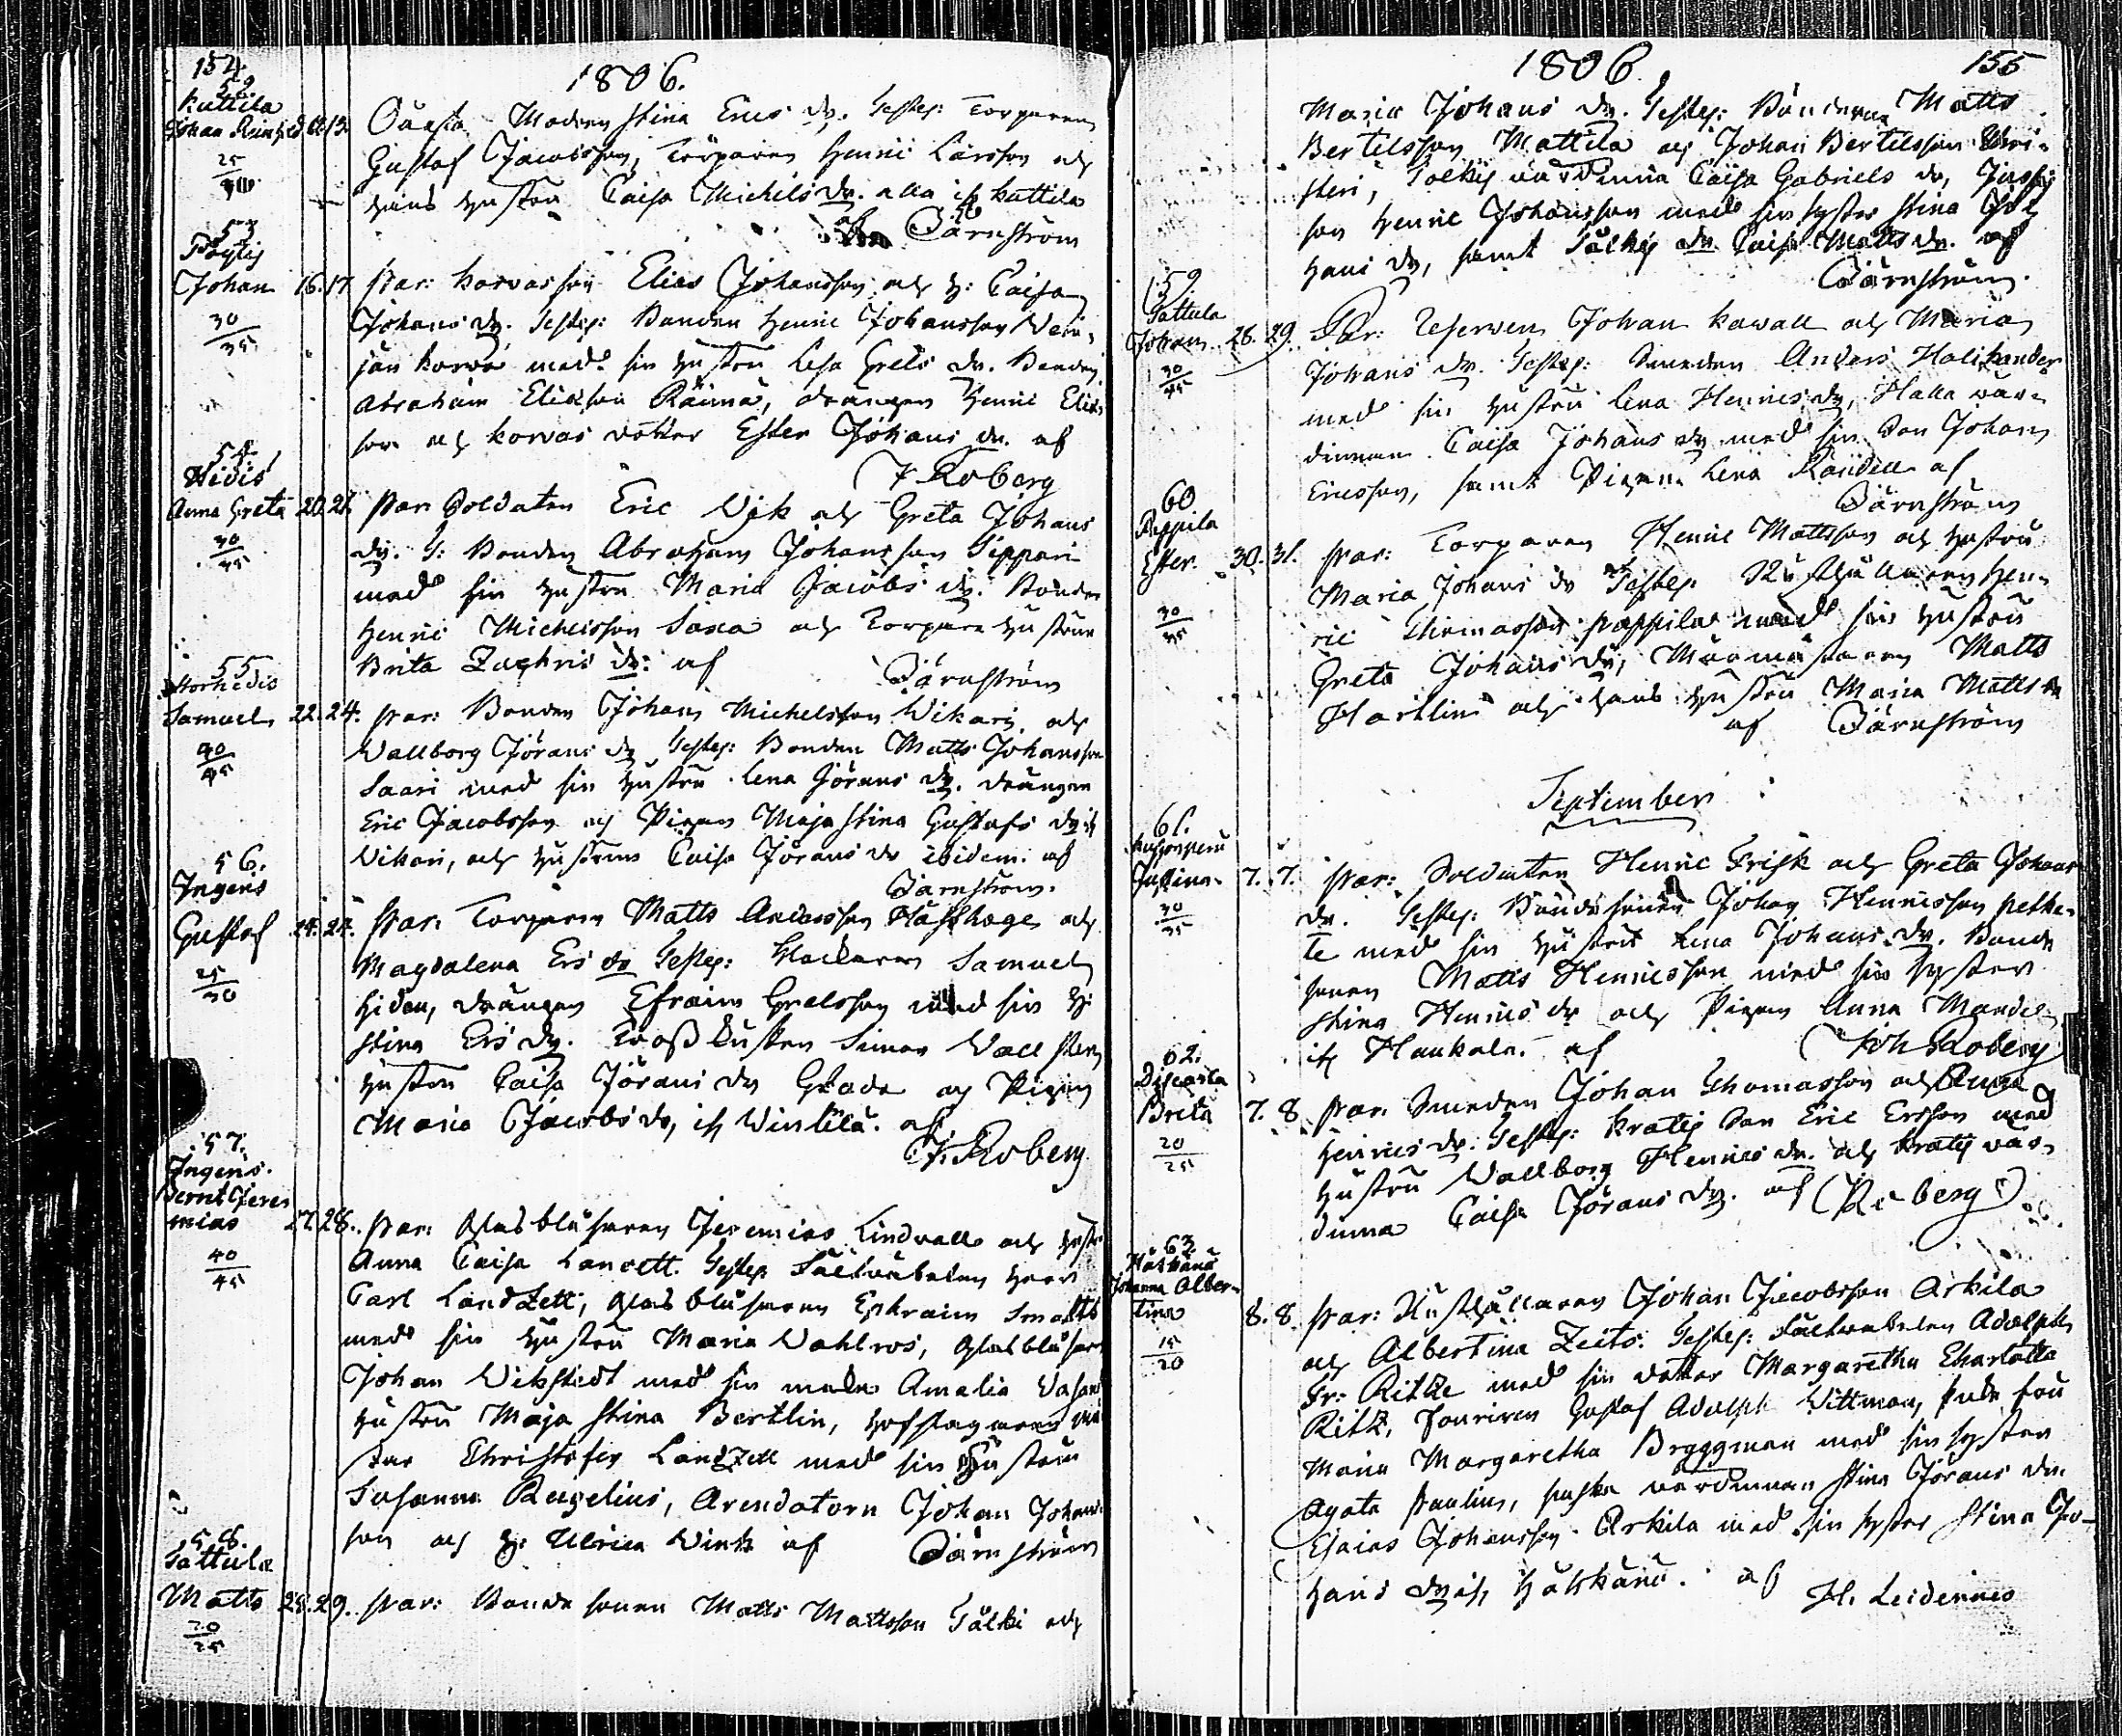 154
1806.
52.
Kuttila
Johan Reinhold 12. 13. Oäkta Modren Stina Erics dr. Testes: Torparen
Gustaf Jacobsson, Torparen Henric Larsson och
hans hustru Caisa Michels dr. alla if: Kuttila
25/30
af Bärnström
53
Pöytis
Johan 16. 17 Par: Korvas son Elias Johansson och h: Caisa
Johans dr. Testes: Bonden Henric Johansson
Korva med sin hustru Lisa Grels dr. Bonden
30/35
Abraham Eliasson Räimä, drängen Henric Elias
son och Korvas dotter Ester Johans dr. af
J Roberg
54
Hidis
Anna Greta 20. 21. Par: Soldaten Eric Wik och Greta Johans
dr. T: Bonden Abraham Johansson Seppäri
30/35
med sin hustru Maria Jacobs dr. Bonden
Henric Michelsson Saxa och Torpare hustrun
Brita Zachris dr: af Bärnström
55
Storhedis
Samuel 22. 24. Par: Bonden Johan Michelsson Wikari och
Wallborg Jörans dr Testes: Bonden Matts Johansson
40/45
Saari med sin hustru Lena Jörans dr. drängen
Eric Jacobsson och Pigan Maja Stina Gustafs dr if
Wikari, och hustrun Caisa Jörans dr ibidem. af
Bärnström.
56.
Ingeris
Gustaf 24. 24. Par: Torparen Matts Andersson Hästhage och
Magdalena Ers dr Testes: Klockaren Samuel
25/30
Hiden, drängen Efraim Grelsson med sin h:
Stina Ers dr. Trosskusken Simon Wallsten
hustru Caisa Jörans dr och Pigan
Maria Jacobs dr, if Wintilä. af
J. Roberg
57.
Ingeris.
Bernt Jere-
mias 27. 28. Par: Glasblåsaren Jeremias Lindvall och hustru
Anna Caisa Landzett. Testes Fältväbelen Herr
40/45
Carl Landzett, Glasblåsaren Ephraim Smaltt
med sin hustru Maria Wahlros, Glasblåsare
Johan Wikstedt med sin maka Amalia
hustru Maja Stina Bertlin, Hofslagaren mä
star Christofer Landzett med sin hustru
Susanna Rugelius, Arendatorn Johan Johans
son och h: Ulrica Wink af Bärnström
58.
Tattula
Matts 28. 29. Par: Bonde sonen Matts Mattsson Tälki och
20/25
1806. 155
Maria Johans dr. Testes: Bönderna Matts
Bertelsson Mattila och Johan Bertelsson
Tolkis värdinna Caisa Gabriels dr,
son Henric Johansson med sin syster Stina Jo
hans dr, samt Tälkis dr Caisa Matts dr. af
Bärnström.
59.
Tattula
Johan 28. 29. Par: Reserven Johan Kawall och Maria
Johans dr. Testes: Smeden Anders Halikander
30/35
med sin hustru Lena Henrics dr, Halla wär-
dinnan Caisa Johans dr med sin Son Johan
Ericsson, samt Pigan Lena Randell af
Bärnström
60
Pappila
Ester 30. 31. Par: Torparen Henric Mattsson och hustru
Maria Johans dr Testes. Rusthållaren Hen-
30/35
ric Thomasson Pappila med sin hustru
Greta Johans dr, Murmästaren Matts
Hartlin och hans hustru Maria Matts dr
af Bärnström
September
61.
Justina. 7. 7. Par: Soldaten Henric Frisk och Greta Johans
dr. Testes: Bondesonen Johan Henricsson
30/35
te med sin hustru Lena Johans dr. Bonde
sonen Matts Henricsson med sin syster
Stina Henrics dr och Pigan Anna Mandel
if Haukala. af Joh Roberg
62.
Breta 7. 8 Par: Smeden Johan Thomasson och Anna
Henrics dr. Testes: Kratis Son Eric Ersson med
20/25
hustru Wallborg Henrics dr. och Kratis vär-
dinna Caisa Jörans dr. af (Roberg)
63
Johanna Alber-
tina 8. 8. Par: Rusthållaren Johan Jacobsson Arkila
och Albertina Zeits. Testes: Fältwäbelen Adolph
15/20
Fr: Ritz med sin dotter Margaretha Charlotta
Ritz, Fouriren Gustaf Adolph Wittman, frun
Maria Margaretha Bryggman med sin syster
Agata Paulin, värdinnan Stina Jörans dr.
Esaias Johansson Arkila med sin syster Stina Jo-
hans dr if af
H. Leidenius